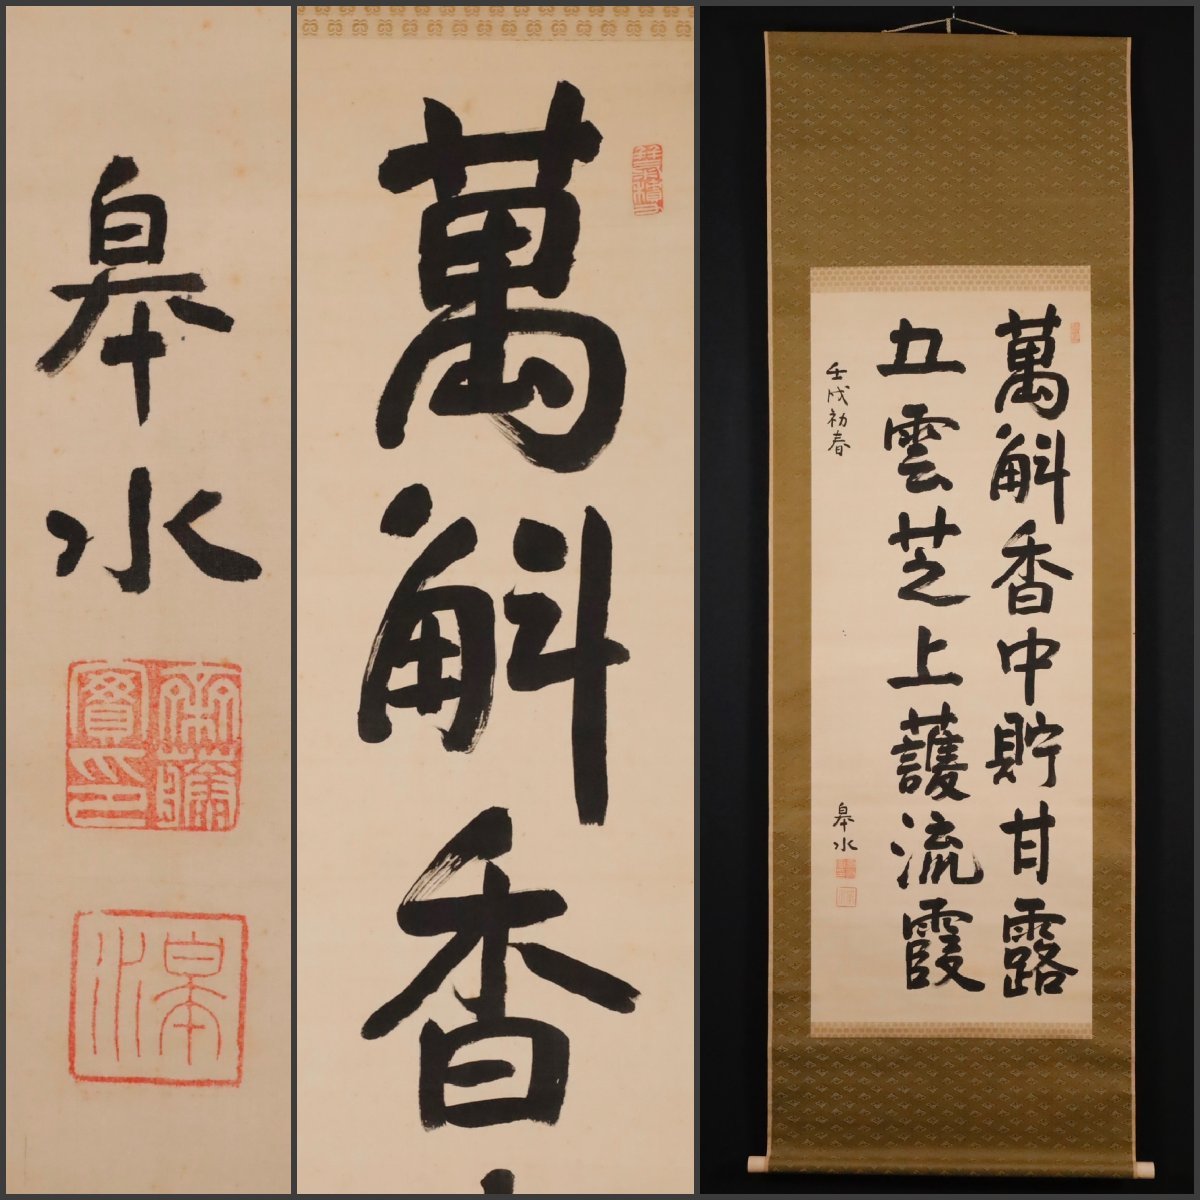 皋水
皋水
萬斛香
萬斛香中貯甘露
五雲芝上護流霞
壬戌初春
皋水